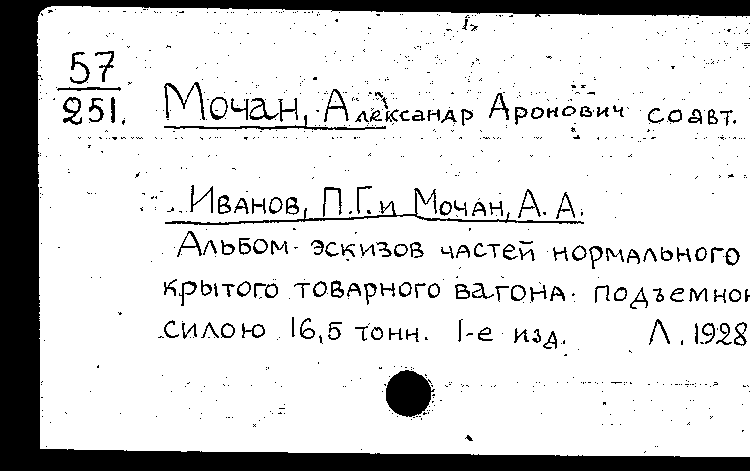 57
251.
Мочан, Александр Аронович соавт.
Иванов, П.Г. и Мочан, А. А.
Альбом эскизов частей нормального
крытого товарного вагона подъемною
силою 16,5 тонн. 1-е изд. Л. 1928